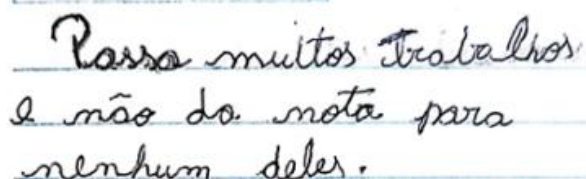 Passa muitos trabalhos
e não da nota para
nenhum deles.